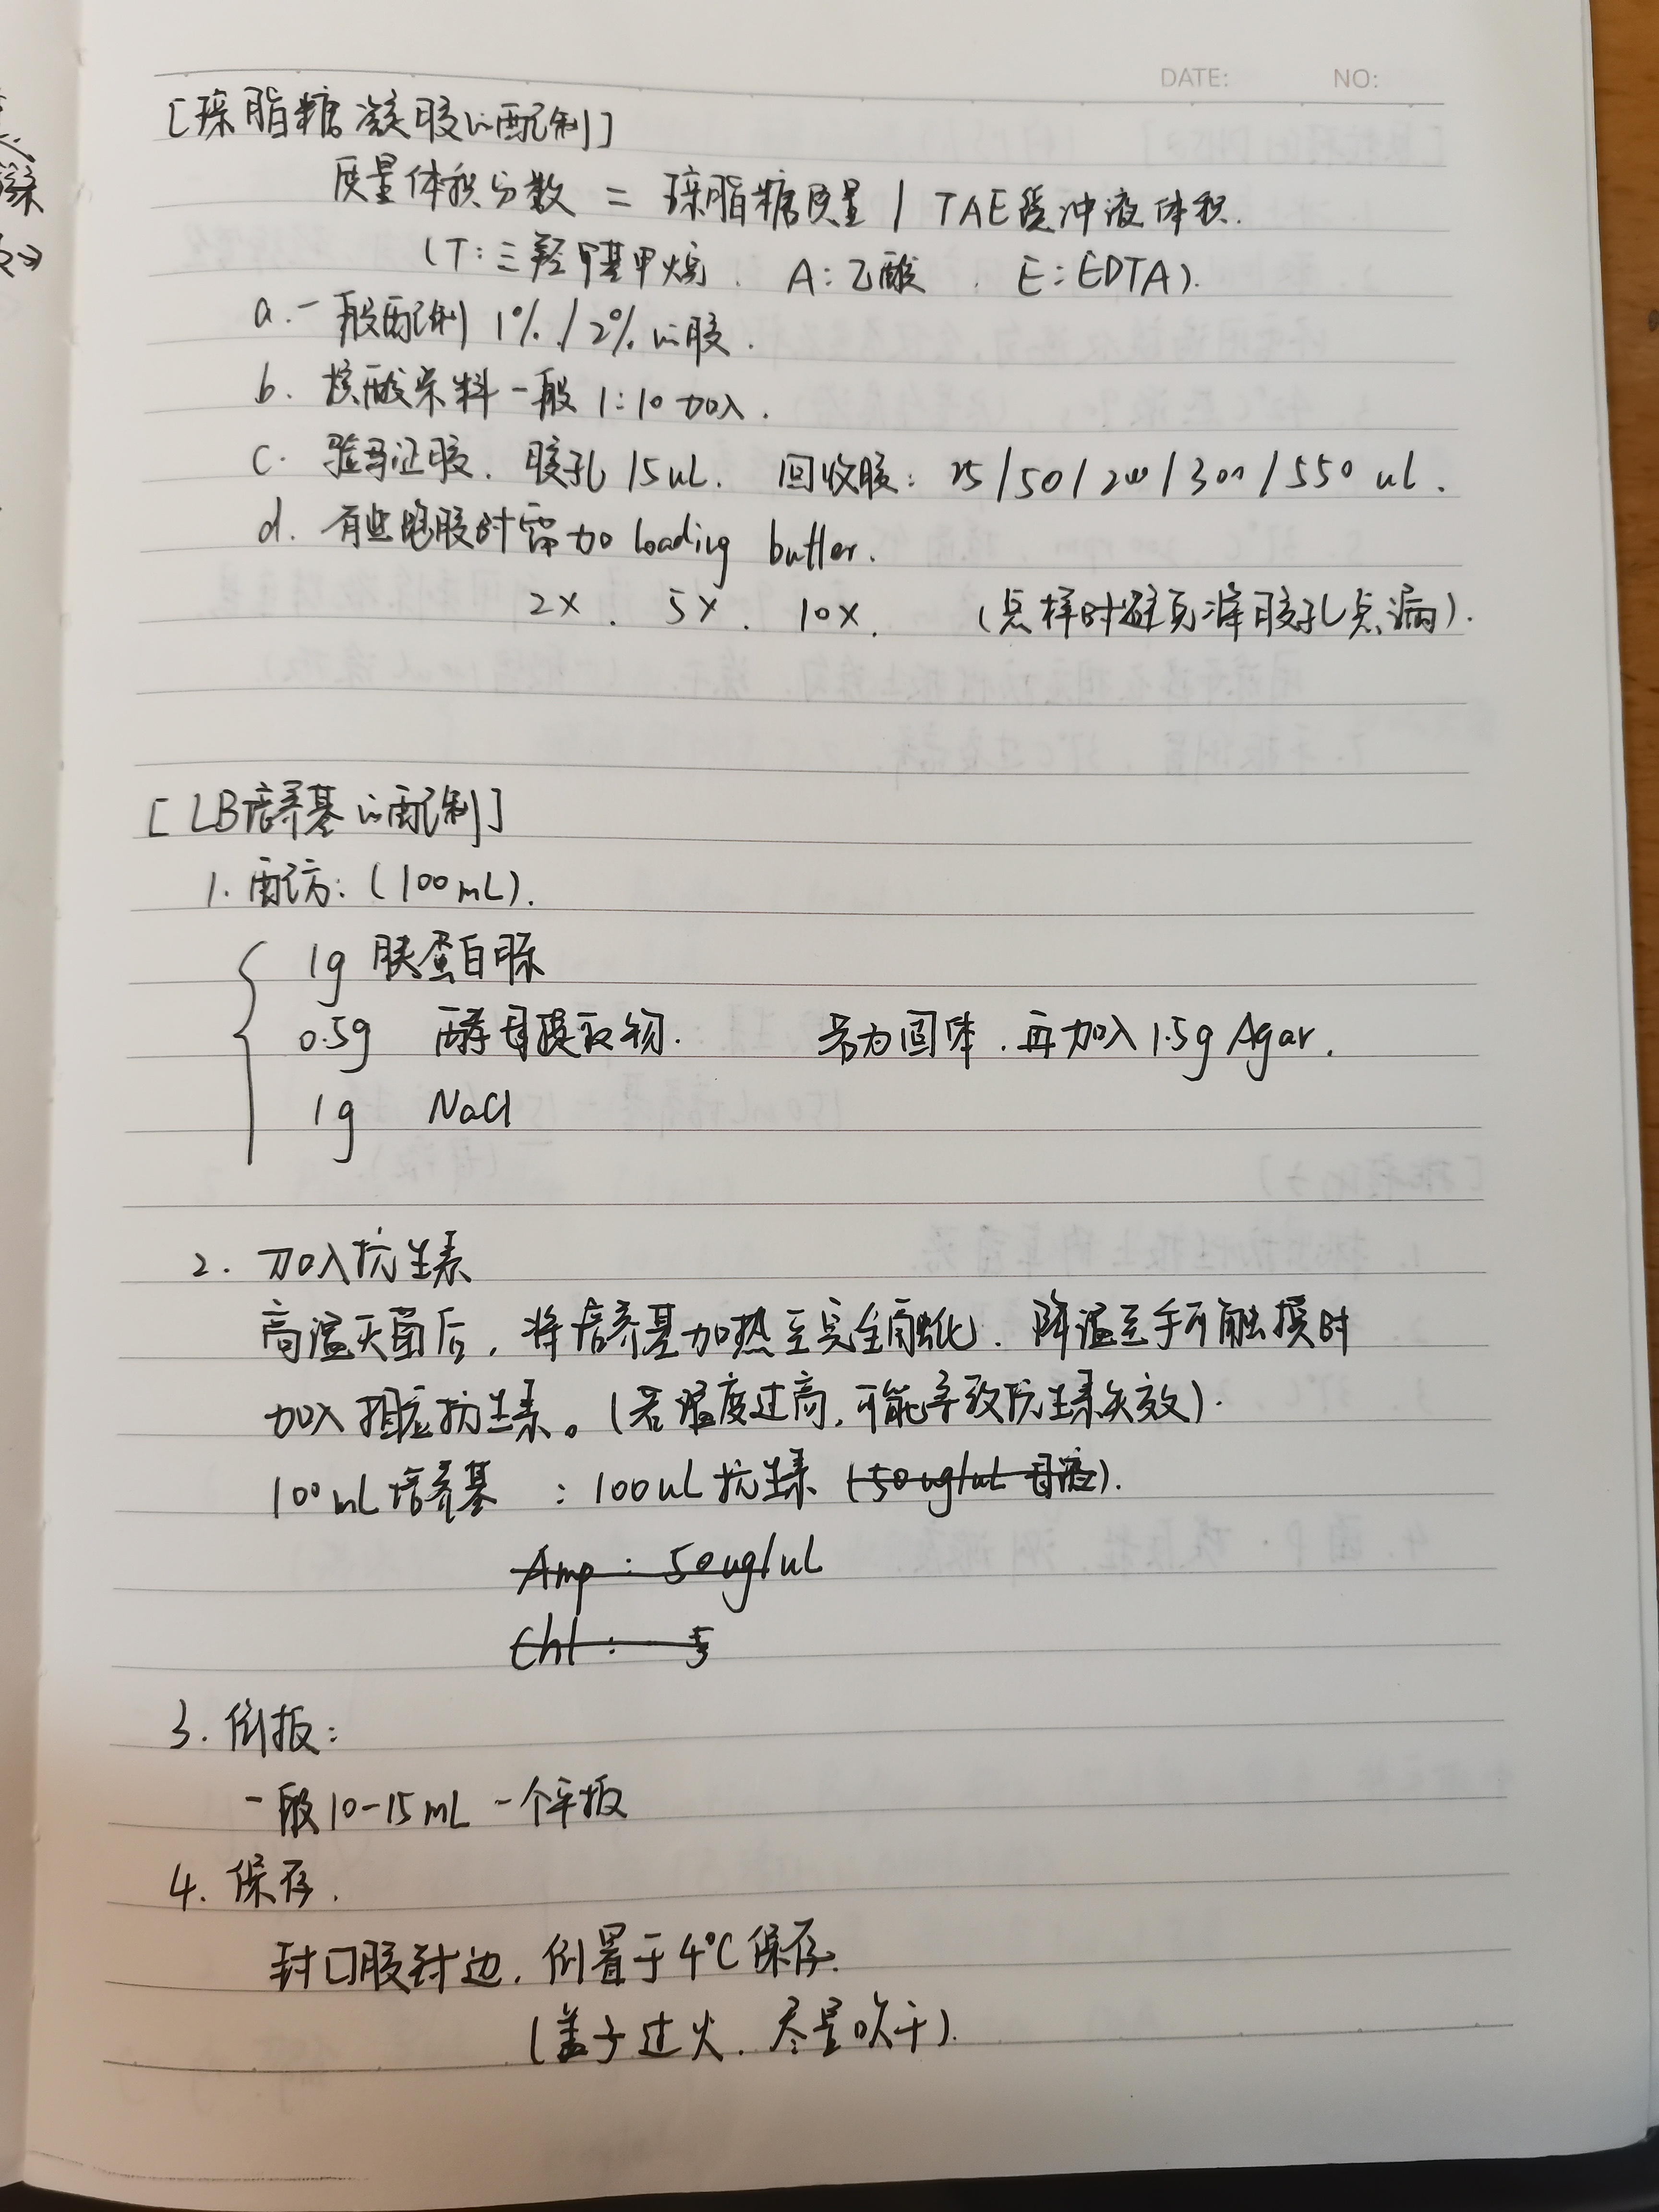 DATE: NO:
[琼脂糖凝胶的配制]
质量体积分数 = 琼脂糖质量 / TAE缓冲液体积.
(T:三羟甲基甲烷. A:乙酸. E:EDTA).
a. 一般配制 1% / 2% 的胶.
b. 核酸染料一般 1:10 加入.
c. 验证胶. 胶孔 15uL. 回收胶: 25/50/200/300/550 ul.
d. 有些跑胶时需加 loading buffer.
2x. 5x. 10x. (点样时避免将胶孔点漏).
[LB培养基的配制]
1. 配方: (100mL).
1g 胰蛋白胨
0.5g 酵母提取物. 若为固体. 再加入 1.5g Agar.
1g NaCl
2. 加入抗生素
高温灭菌后, 将培养基加热至完全融化. 降温至手可触摸时
加入相应抗生素。(若温度过高, 可能导致抗生素失效).
100mL培养基 : 100uL抗生素 (50ug/uL 母液).
Amp : 50ug/uL
Chl : 5
3. 倒板:
一般10-15mL 一个平板
4. 保存.
封口胶封边, 倒置于4℃保存.
(盖子过火. 尽量吹干).